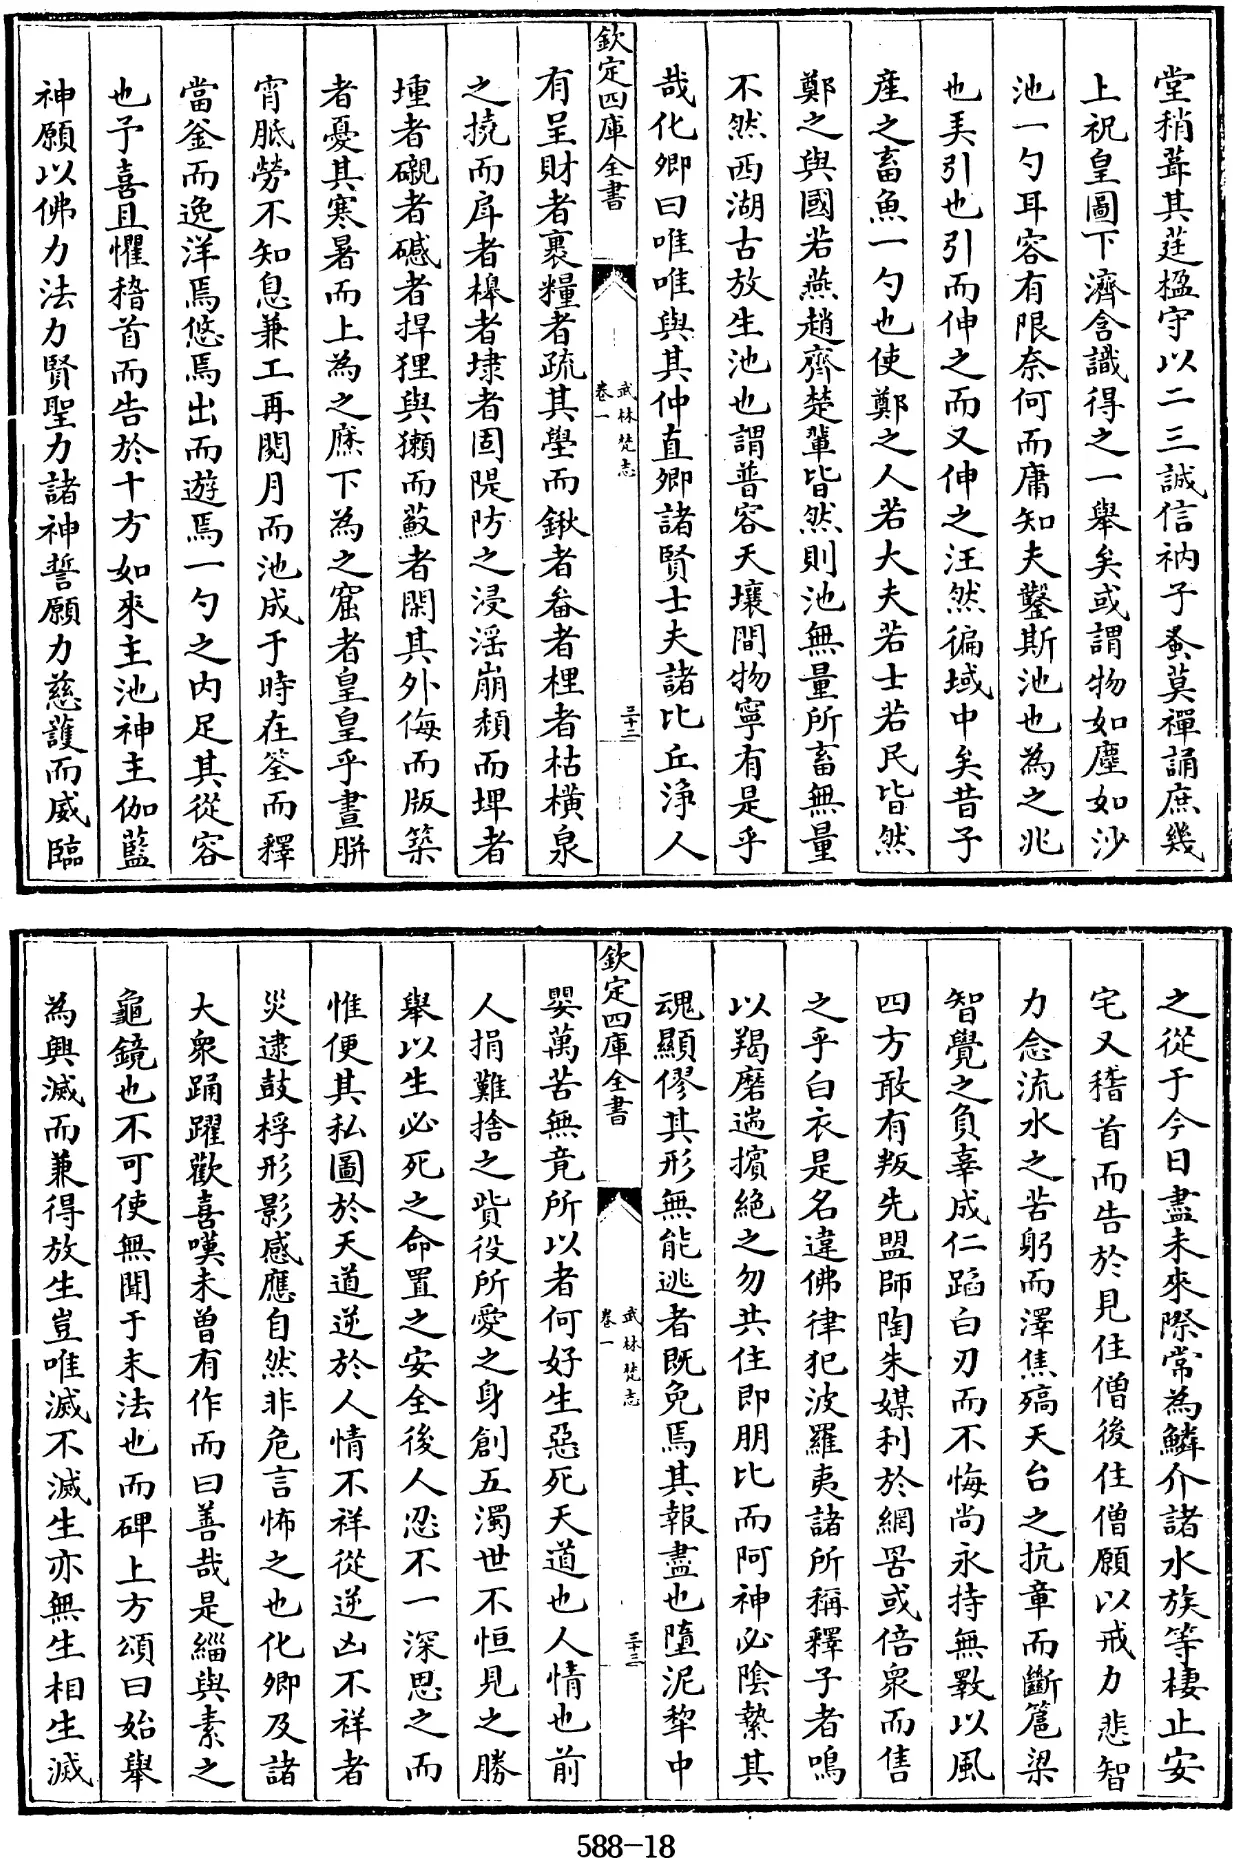 堂稍葺其莛楹守以二三誠信衲子蚤莫禪誦庶幾
上祝皇圖下濟含識得之一舉矣或謂物如塵如沙
池一勺耳容有限奈何而庸知夫鑿斯池也為之兆
也美引也引而伸之而又伸之汪然徧域中矣昔子
産之畜魚一勺也使鄭之人若大夫若士若民皆然
鄭之與國若燕趙齊楚輩皆然則池無量所畜無量
不然西湖古放生池也謂普容天壤間物寧有是乎
哉化卿曰唯唯與其仲直卿諸賢士夫諸比丘淨人
欽定四庫全書
武林梵志
卷一
三十二
有呈財者裹糧者疏其壆而鍬者畚者梩者枯橫泉
之撓而戽者槔者埭者固隄防之浸淫崩頽而埤者
堹者礥者礛者捍狸與獺而蔌者閑其外侮而版築
者憂其寒暑而上為之庥下為之窟者皇皇乎晝胼
宵胝勞不知息兼工再閱月而池成于時在筌而釋
當釜而逸洋焉悠焉出而遊焉一勺之内足其從容
也予喜且懼稽首而告於十方如來主池神主伽藍
神願以佛力法力賢聖力諸神誓願力慈護而威臨
之從于今日盡未來際常為鱗介諸水族等棲止安
宅又稽首而告於見住僧後住僧願以戒力悲智
力念流水之苦躬而澤焦殢天台之抗章而斷篊梁
智覺之負辜成仁蹈白刃而不悔尚永持無斁以風
四方敢有叛先盟師陶朱媒利於網罟或倍衆而售
之乎白衣是名違佛律犯波羅夷諸所稱釋子者鳴
以羯磨遄擯絶之勿共住即朋比而阿神必陰縶其
魂顯僇其形無能逃者既免焉其報盡也墮泥犂中
欽定四庫全書
武林梵志
卷一
三十三
嬰萬苦無竟所以者何好生惡死天道也人情也前
人捐難捨之貲役所愛之身創五濁世不恒見之勝
舉以生必死之命置之安全後人忍不一深思之而
惟便其私圖於天道逆於人情不祥從逆凶不祥者
災逮鼓桴形影感應自然非危言怖之也化卿及諸
大衆踊躍歡喜嘆未曾有作而曰善哉是緇與素之
龜鏡也不可使無聞于末法也而碑上方頌曰始舉
為興滅而兼得放生豈唯滅不滅生亦無生相生滅
588-18